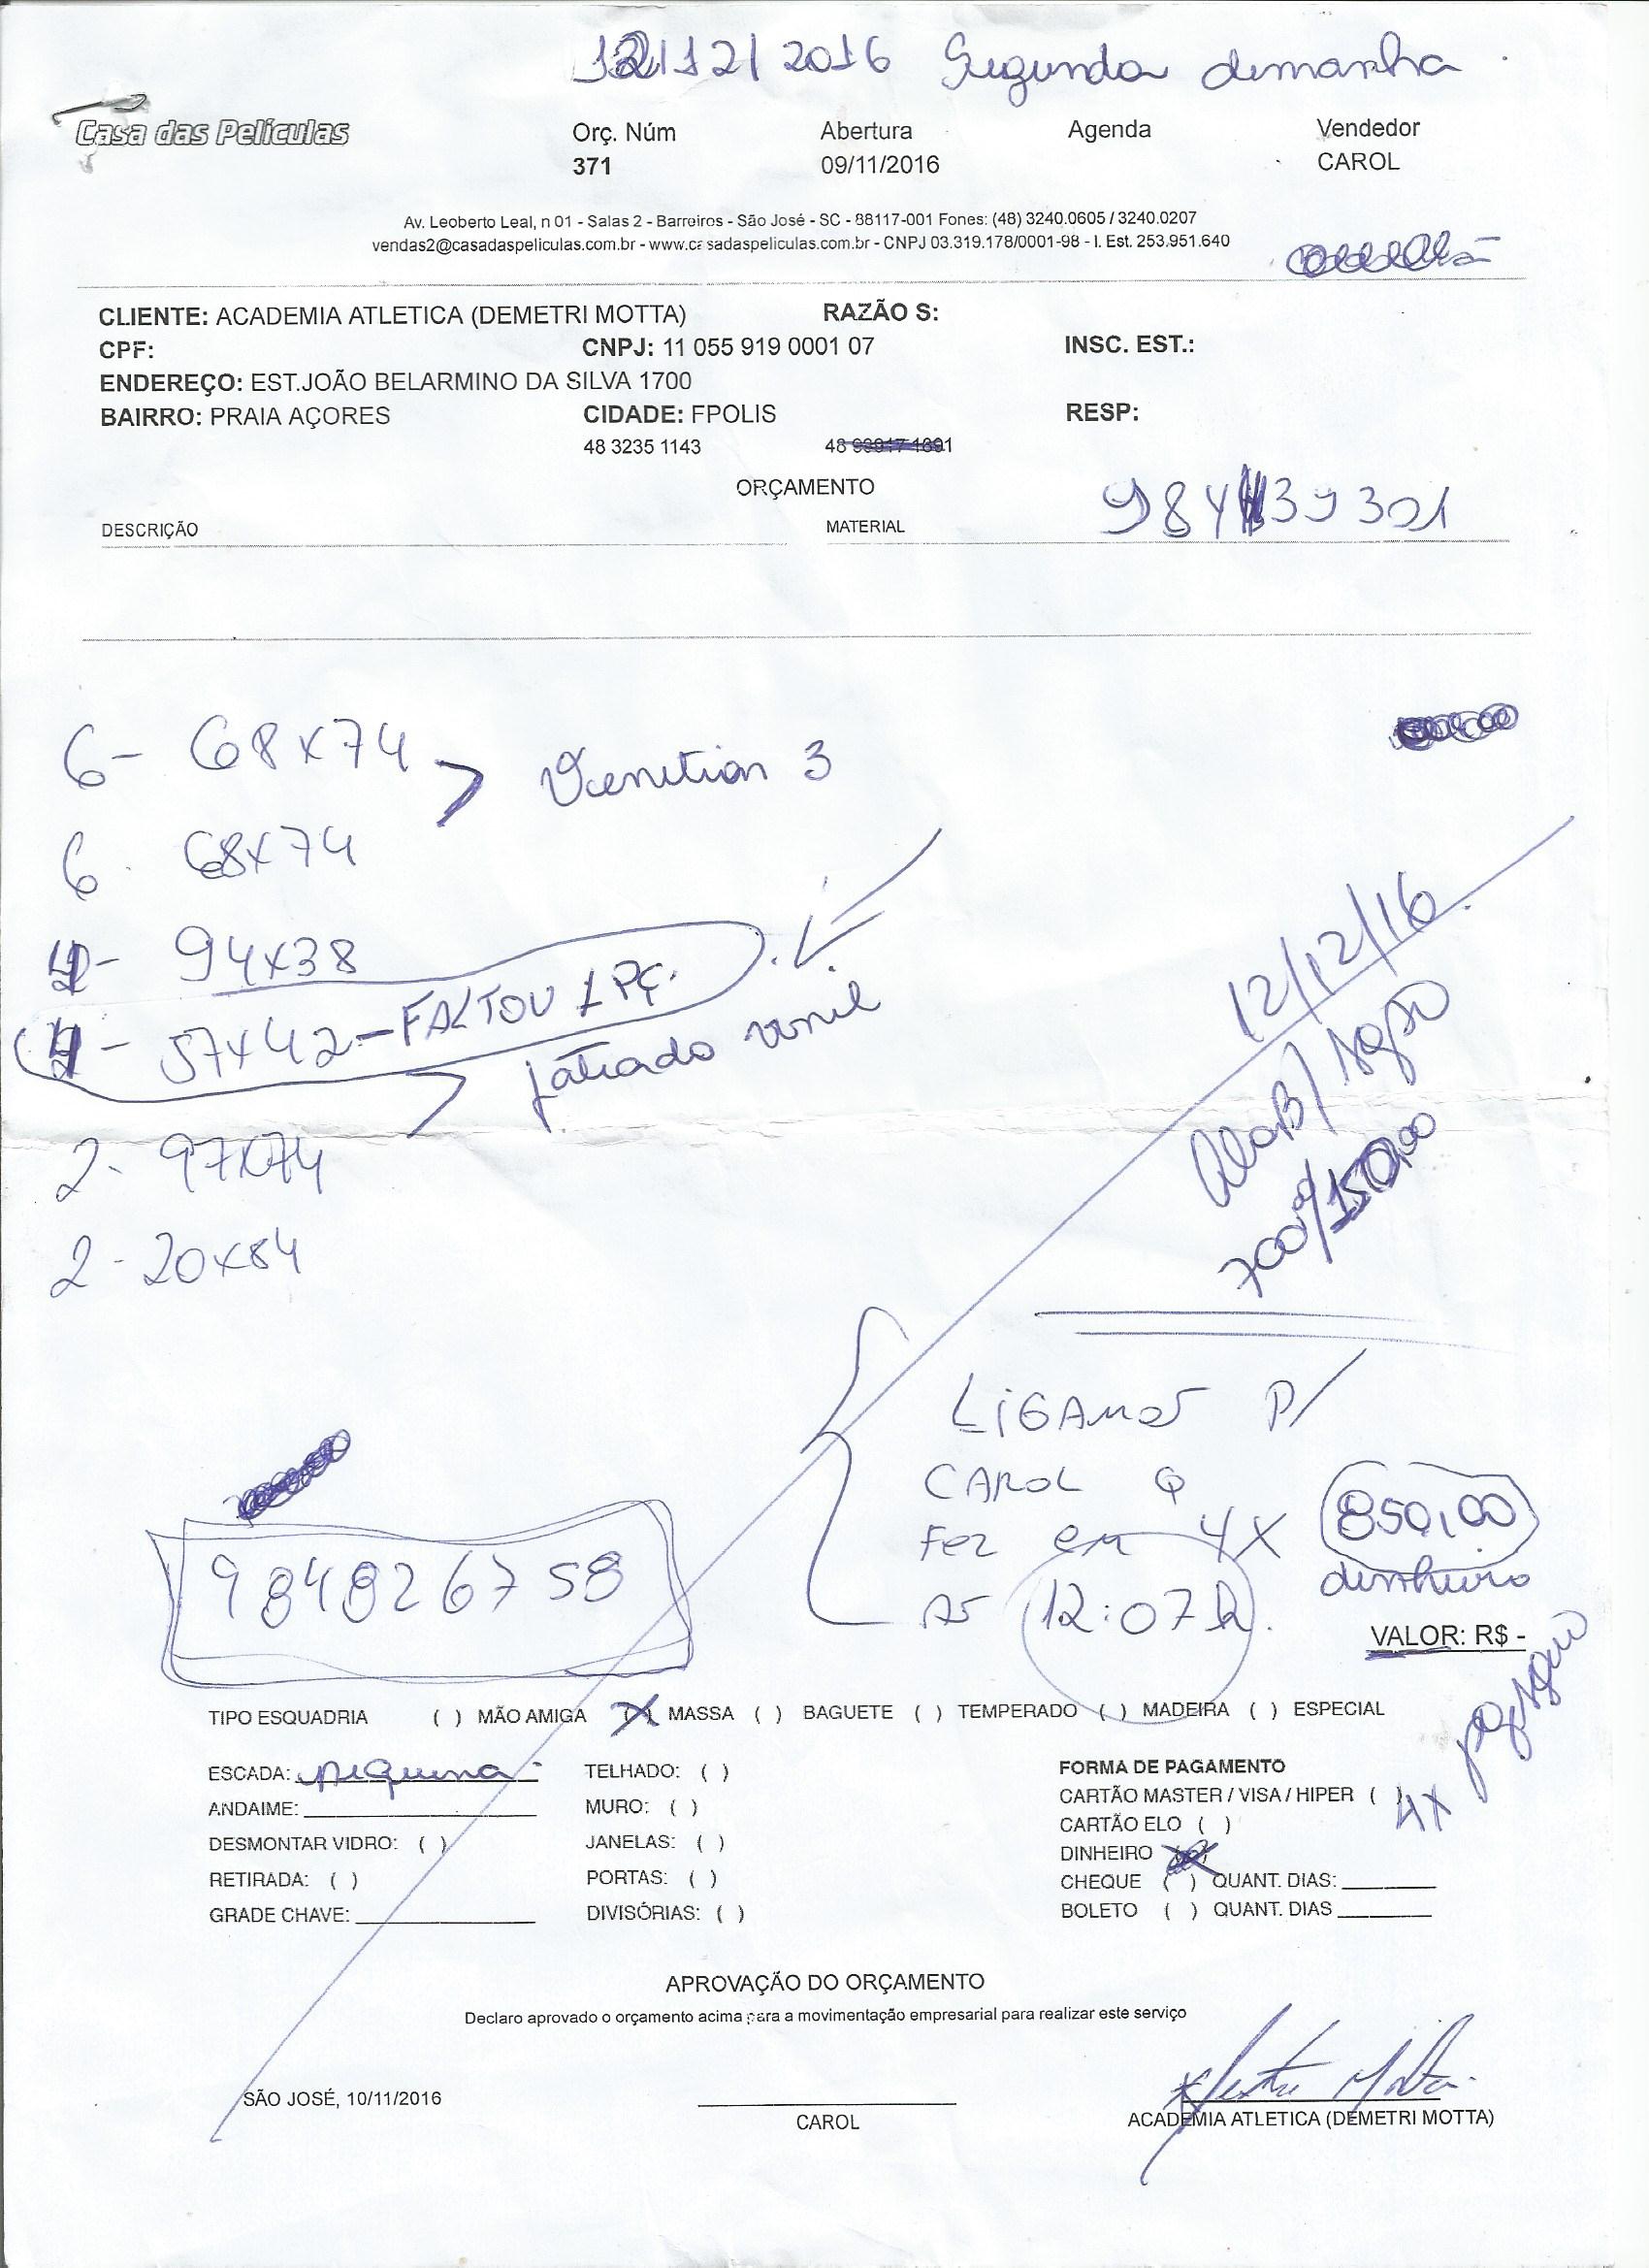 12/12/2016 Segunda demanha
Casa das Películas
Orç. Núm Abertura Agenda Vendedor
371 09/11/2016 CAROL
Av. Leoberto Leal, n 01 - Salas 2 - Barreiros - São José - SC - 88117-001 Fones: (48) 3240.0605 / 3240.0207
vendas2@casadaspeliculas.com.br - www.casadaspeliculas.com.br - CNPJ 03.319.178/0001-98 - I. Est. 253.951.640
CLIENTE: ACADEMIA ATLETICA (DEMETRI MOTTA) RAZÃO S:
CPF: CNPJ: 11 055 919 0001 07 INSC. EST.:
ENDEREÇO: EST.JOÃO BELARMINO DA SILVA 1700
BAIRRO: PRAIA AÇORES CIDADE: FPOLIS RESP:
48 3235 1143 48
ORÇAMENTO
DESCRIÇÃO MATERIAL
6- 68x74 Venitian 3
6 68x74
94x38
57x42-FALTOU 1 PÇ.
jateado vinil
2- 97x74
2-20x84
12/12/16
700,00/150,00
LIGAMOS P/
CAROL Q
FEZ em 4X
AS 12:07h.
850,00
dinheiro
984826758
VALOR: R$ -
TIPO ESQUADRIA ( ) MÃO AMIGA (X) MASSA ( ) BAGUETE ( ) TEMPERADO ( ) MADEIRA ( ) ESPECIAL
ESCADA: pequena TELHADO: ( ) FORMA DE PAGAMENTO
ANDAIME: MURO: ( ) CARTÃO MASTER / VISA / HIPER ( ) 4x
DESMONTAR VIDRO: ( ) JANELAS: ( ) CARTÃO ELO ( )
RETIRADA: ( ) PORTAS: ( ) DINHEIRO (X)
GRADE CHAVE: DIVISÓRIAS: ( ) CHEQUE ( ) QUANT. DIAS:
BOLETO ( ) QUANT. DIAS
APROVAÇÃO DO ORÇAMENTO
Declaro aprovado o orçamento acima para a movimentação empresarial para realizar este serviço
SÃO JOSÉ, 10/11/2016
CAROL
ACADEMIA ATLETICA (DEMETRI MOTTA)